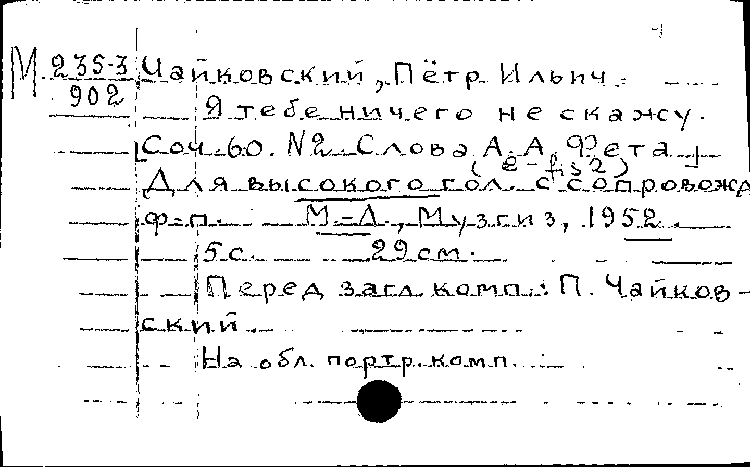 М 235-3 Чайковский, Пётр Ильич.
902
Я тебе ничего не скажу.
Соч. 60. №2. Слова А. А. Фета
(e - fis2)
Для высокого гол. с сопровожд
ф-п. М.-Л., Музгиз, 1952.
5 с. 29 см.
Перед загл. комп.: П. Чайков-
ский.
На обл. портр. комп.